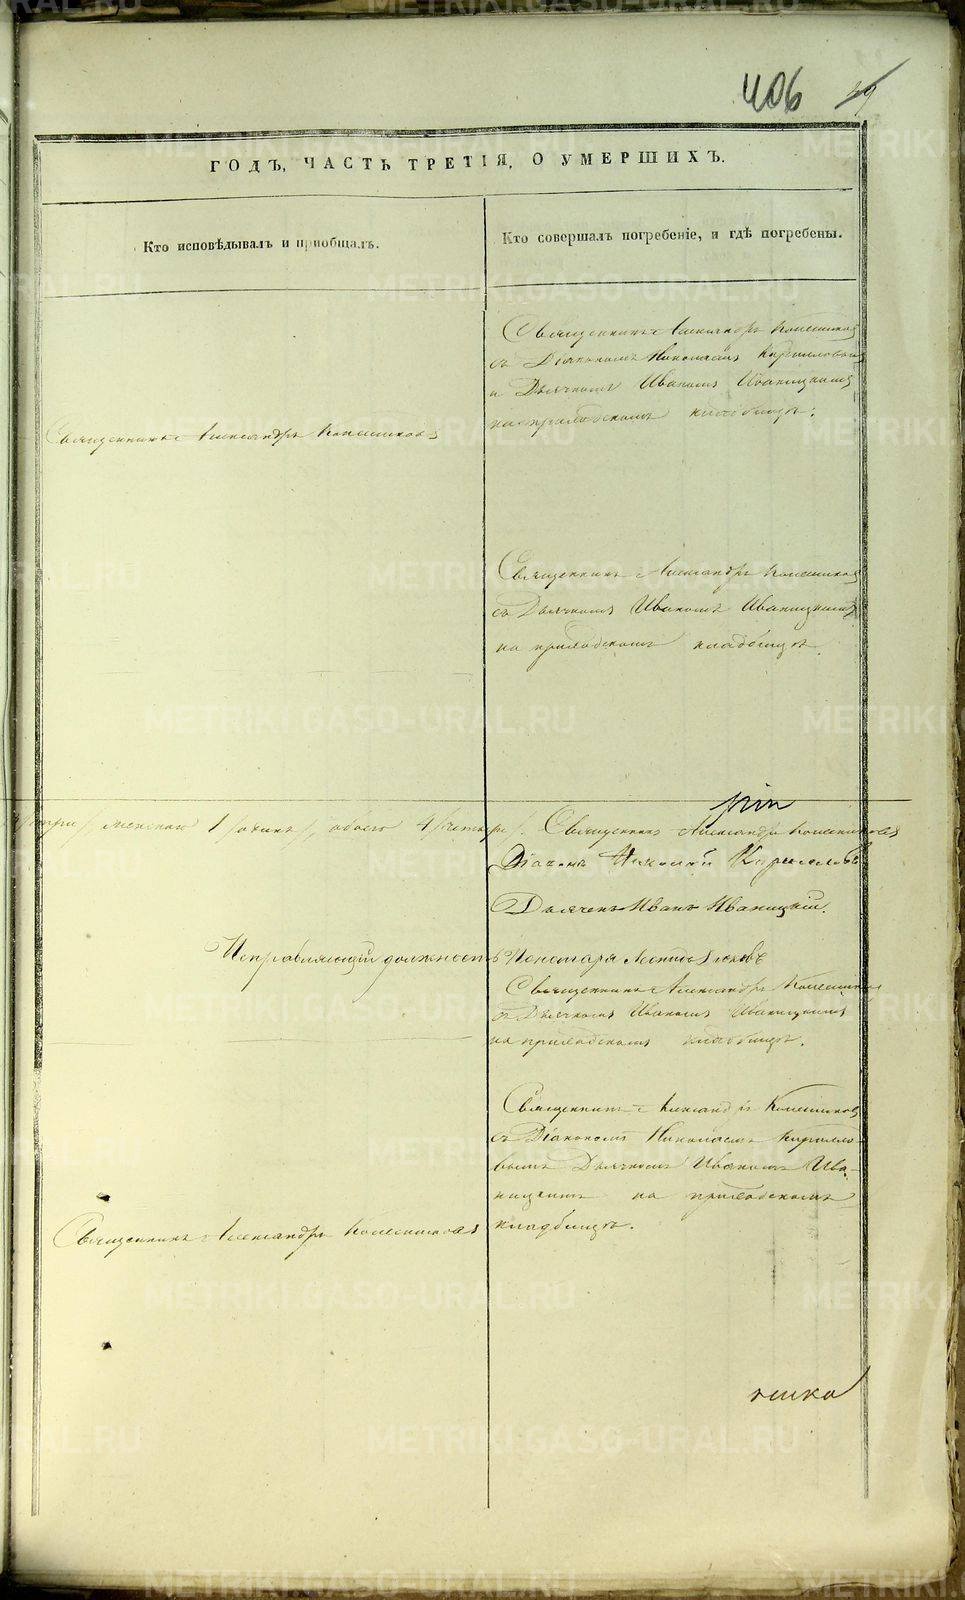 406 39
ГОДЪ, ЧАСТЬ ТРЕТІЯ, О УМЕРШИХЪ.
Кто исповѣдывалъ и пріобщалъ.
Кто совершалъ погребеніе, и гдѣ погребены.
Священникъ Александръ Колесниковъ
съ Діакономъ Николаемъ Кирилловымъ
и Дьячкомъ Иваномъ Иваницкимъ
на приходскомъ кладбищѣ.
Священникъ Александръ Колесниковъ
Священникъ Александръ Колесниковъ
съ Дьячкомъ Иваномъ Иваницкимъ
на приходскомъ кладбищѣ.
три/, женска 1 /одинъ/, обоего 4 /четыре/. Священникъ Александръ Колесниковъ
Діаконъ Николай Кирилловъ
Дьячекъ Иванъ Иваницкій.
Исправляющій должность Пономаря Леонидъ
Священникъ Александръ Колесниковъ
съ Дьячкомъ Иваномъ Иваницкимъ
на приходскомъ кладбищѣ.
Священникъ Александръ Колесниковъ
съ Діакономъ Николаемъ Кирилло-
вымъ Дьячкомъ Иваномъ Ива-
ницкимъ на приходскомъ
кладбищѣ.
Священникъ Александръ Колесниковъ
METRIKI.GASO-URAL.RU